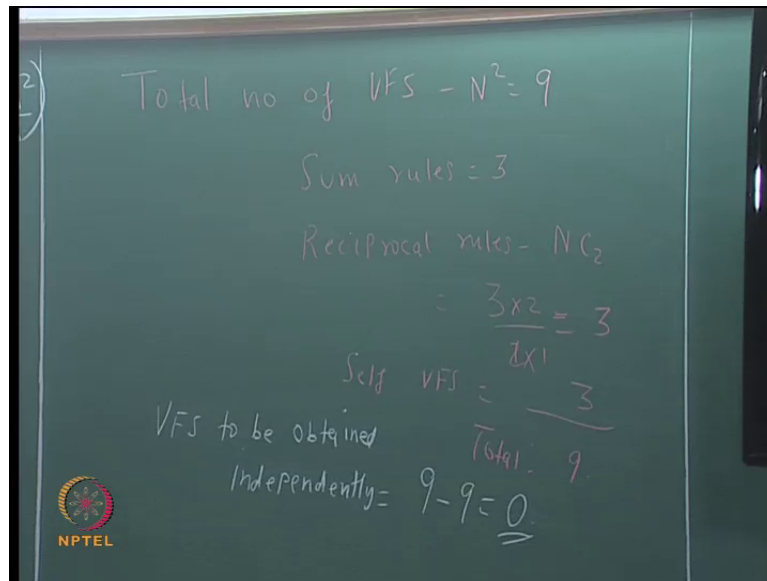 2
Total no of VFS - N² = 9
Sum rules = 3
Reciprocal rules - NC₂
= 3x2 / 2x1 = 3
Self VFS = 3
VFS to be obtained
Total: 9.
Independently = 9-9 = 0.
NPTEL